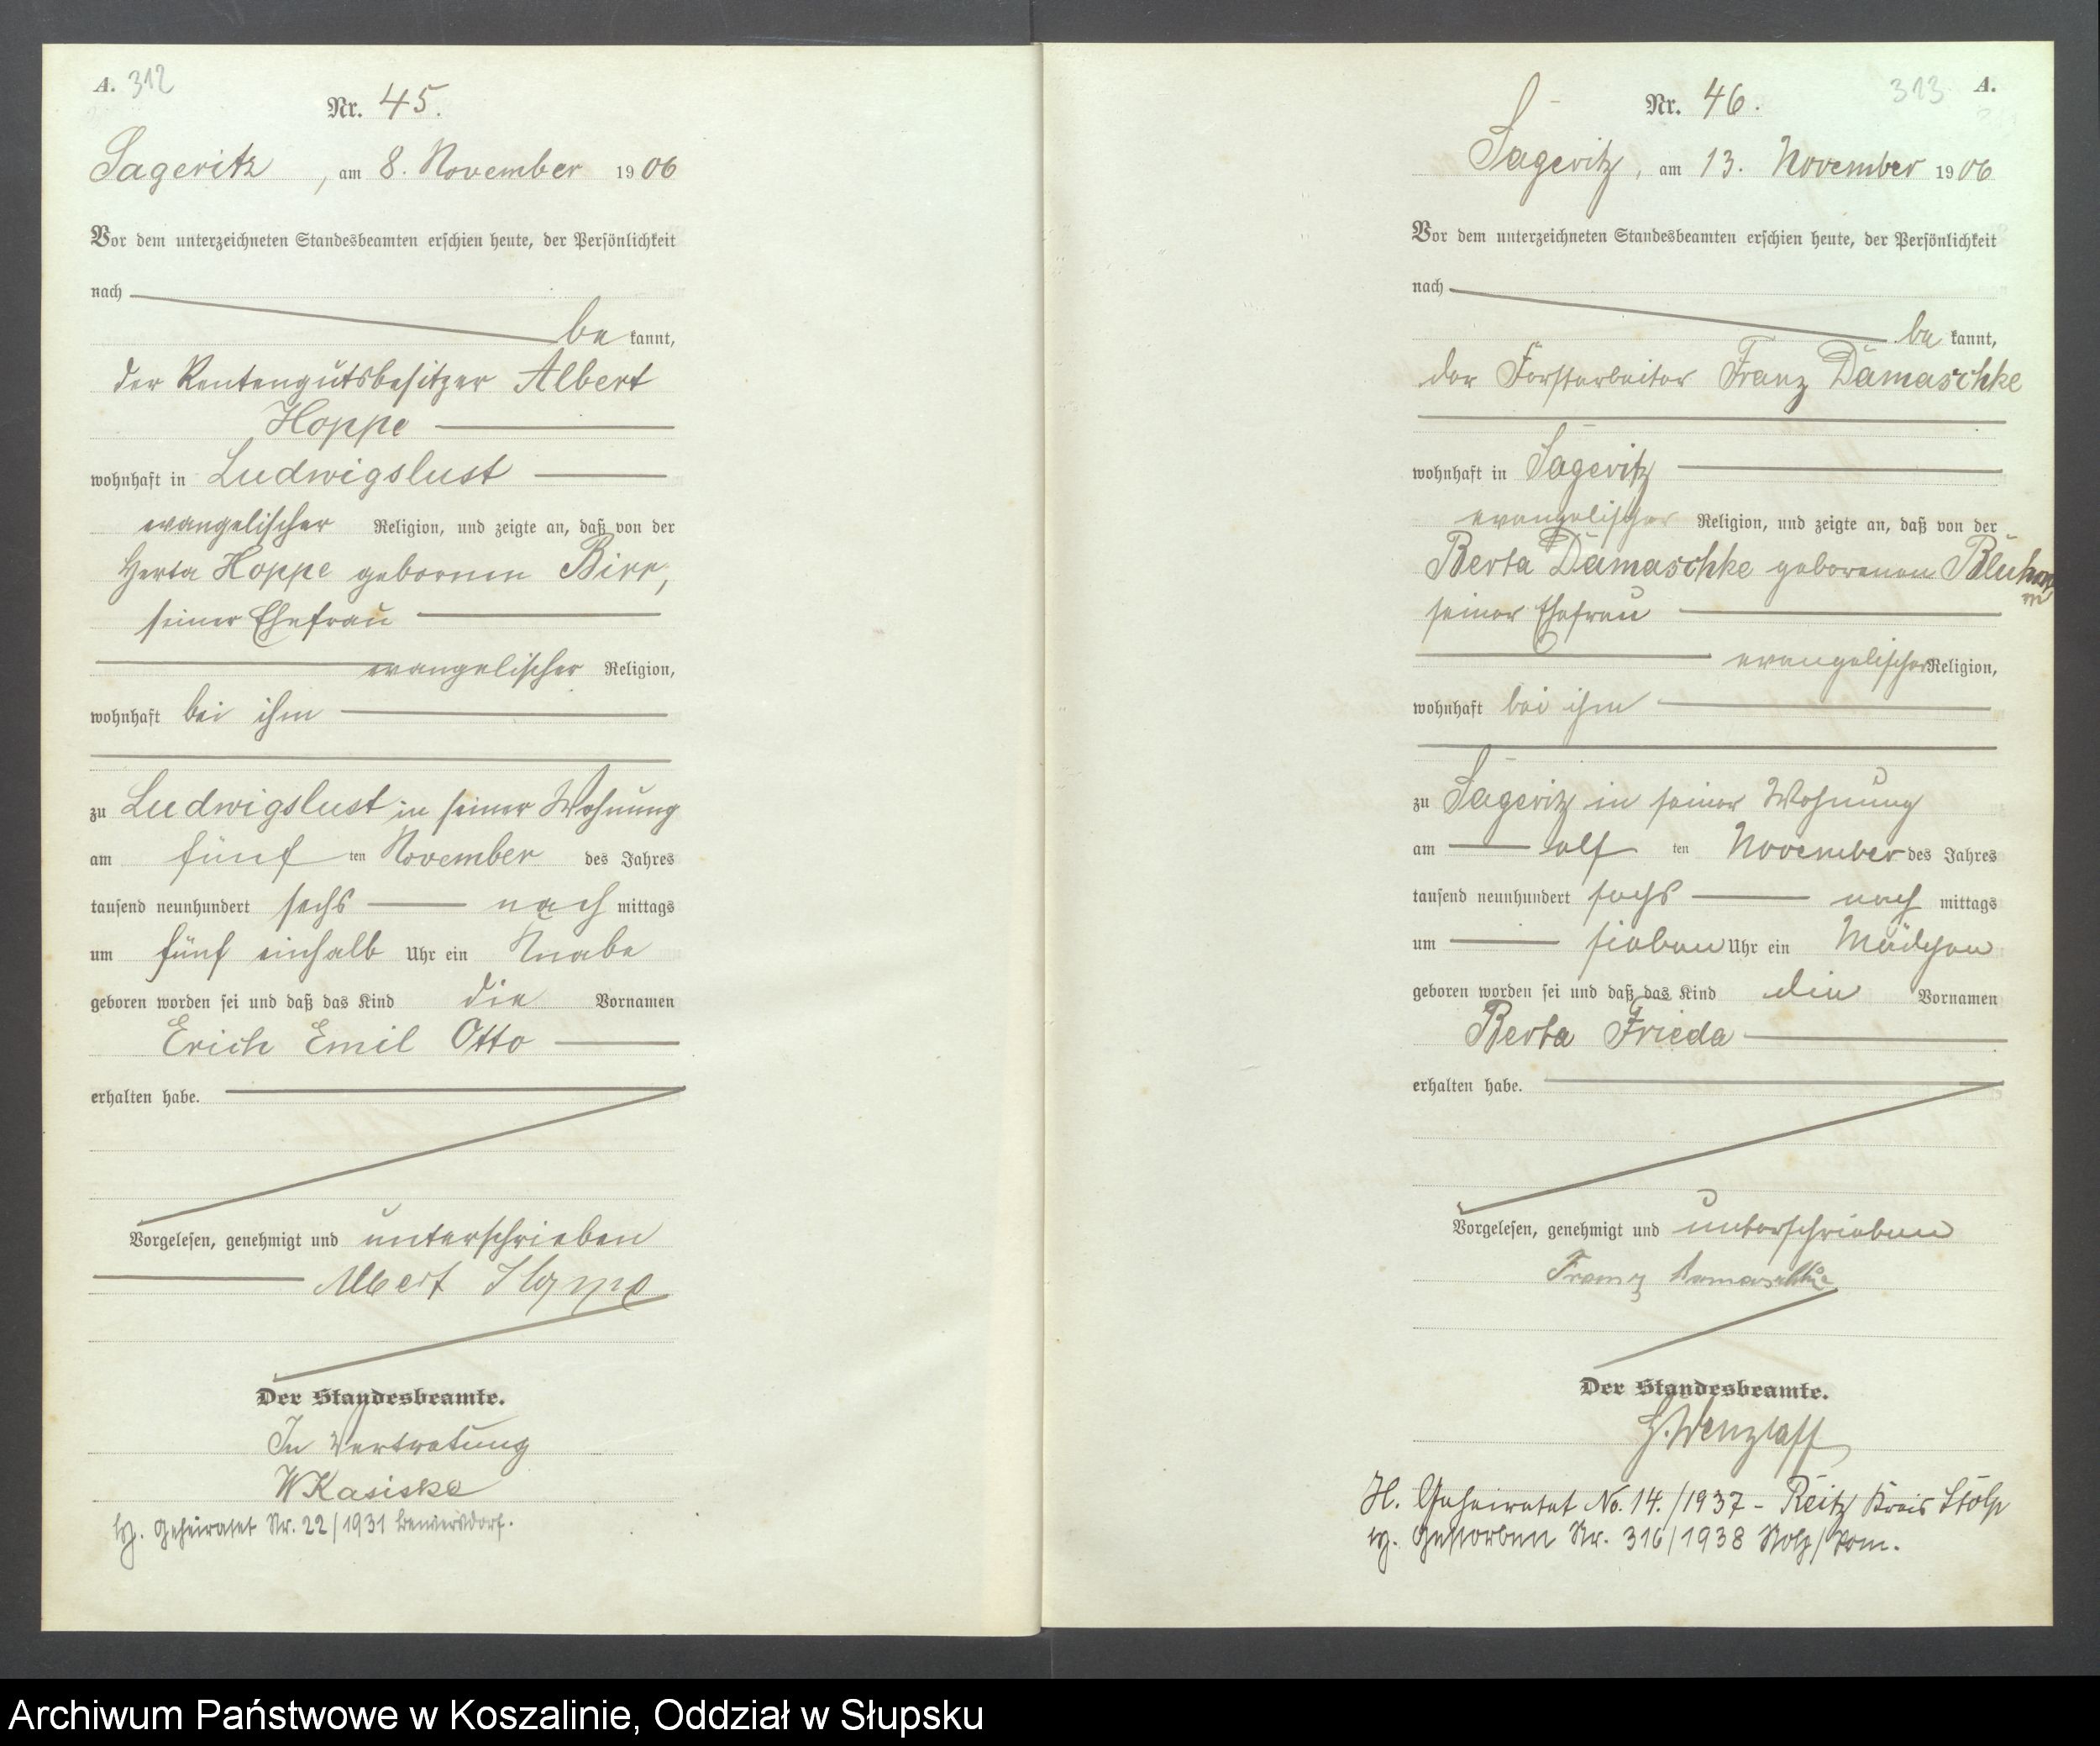 A. 312
Nr. 45.
Sageritz, am 8. November 1906
Vor dem unterzeichneten Standesbeamten erschien heute, der Persönlichkeit
nach
be kannt,
der Rentengutsbesitzer Albert
Hoppe
wohnhaft in Ludwigslust
evangelischer Religion, und zeigte an, daß von der
Herta Hoppe geborenen Birr,
seiner Ehefrau
evangelischer Religion,
wohnhaft bei ihm
zu Ludwigslust in seiner Wohnung
am fünf ten November des Jahres
tausend neunhundert sechs nach mittags
um fünf einhalb Uhr ein Knabe
geboren worden sei und daß das Kind die Vornamen
Erich Emil Otto
erhalten habe.
Vorgelesen, genehmigt und unterschrieben
Albert Hoppe
Der Standesbeamte.
In Vertretung
W Kasiske
Geheiratet Nr. 22/1931
313 A.
Nr. 46.
Sageritz, am 13. November 1906
Vor dem unterzeichneten Standesbeamten erschien heute, der Persönlichkeit
nach
be kannt,
der Forstarbeiter Franz Damaschke
wohnhaft in Sageritz
evangelischer Religion, und zeigte an, daß von der
Berta Damaschke geborenen Bluhm,
seiner Ehefrau
evangelischer Religion,
wohnhaft bei ihm
zu Sageritz in seiner Wohnung
am elf ten November des Jahres
tausend neunhundert sechs nach mittags
um sieben Uhr ein Mädchen
geboren worden sei und daß das Kind die Vornamen
Berta Frieda
erhalten habe.
Vorgelesen, genehmigt und unterschrieben
Franz Damaschke
Der Standesbeamte.
H. Wenzlaff
H. Geheiratet No. 14./1937 - Reitz Kreis Stolp
Gestorben Nr. 316/1938 Stolp/Pom.
Archiwum Państwowe w Koszalinie, Oddział w Słupsku